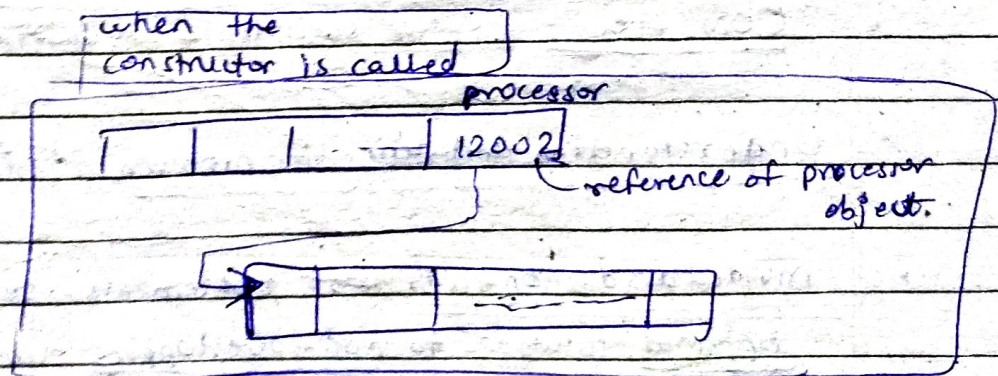 when the
constructor is called
processor
12002
reference of processor
object.